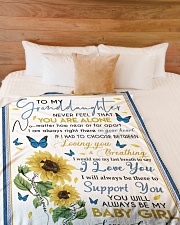 TO MY
Granddaughter
NEVER FEEL THAT
YOU ARE ALONE
No matter how near or far apart
I am always right there in your heart
IF I HAD TO CHOOSE BETWEEN
Loving you
Breathing
I would use my last breath to say
I Love You
I will always be there to
Support You
YOU WILL
ALWAYS BE MY
BABY GIRL